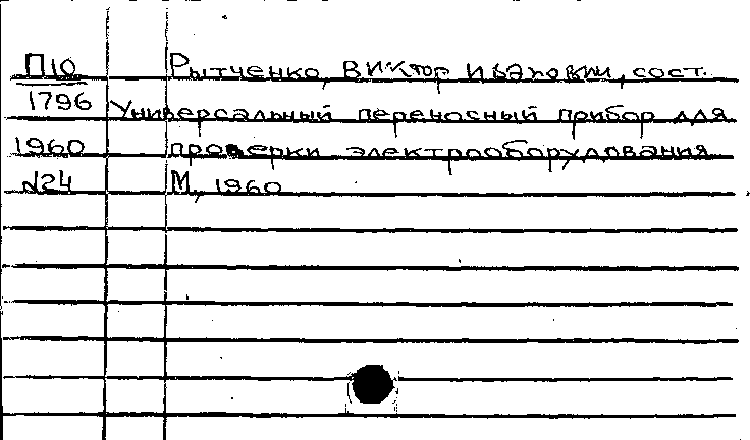 П10 Рытченко, Виктор Иванович, сост.
1796 Универсальный переносный прибор для
1960 проверки электрооборудования
№24 М, 1960